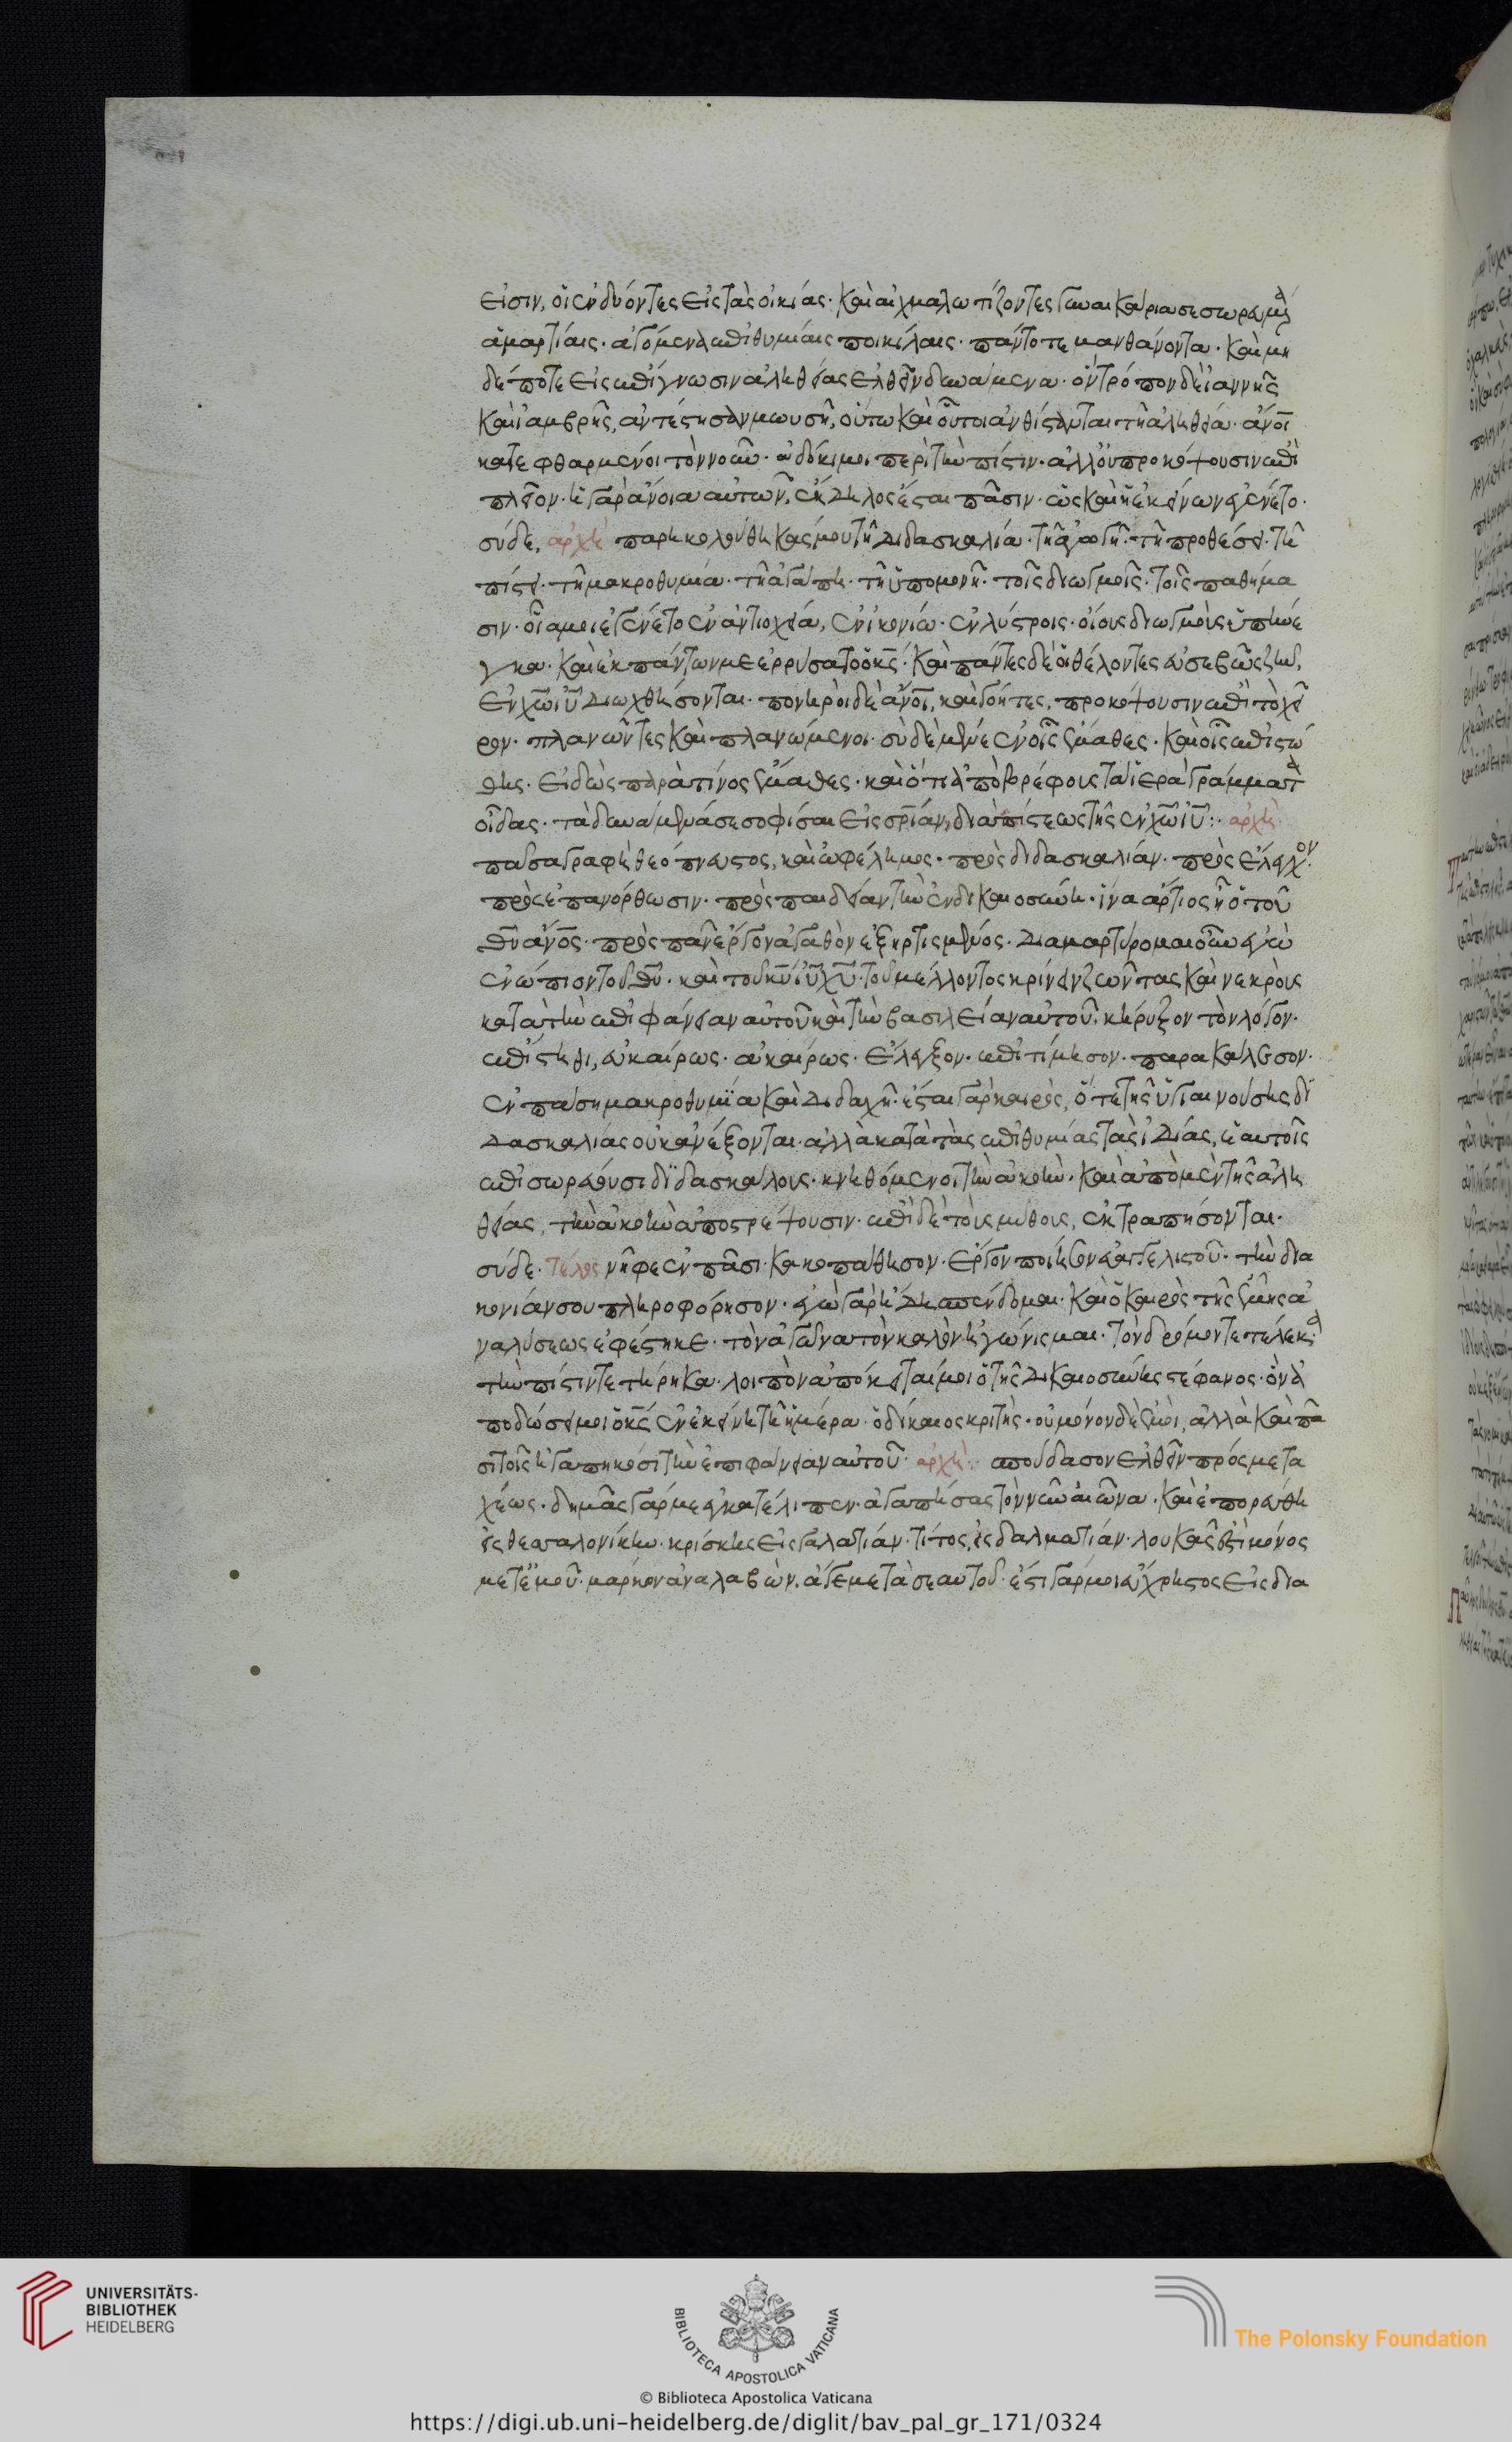 εἰσιν, οἱ ἐνδύοντες εἰς τὰς οἰκίας· καὶ αἰχμαλωτίζοντες γυναικάρια σεσωρευμένα
ἁμαρτίαις· ἀγόμενα ἐπιθυμίαις ποικίλαις· πάντοτε μανθάνοντα· καὶ μη
δέποτε εἰς ἐπίγνωσιν ἀληθείας ἐλθεῖν δυνάμενα· ὃν τρόπον δὲ ἰαννῆς
καὶ ἰαμβρῆς, ἀντέστησαν μωυσῆ, οὕτω καὶ οὗτοι ἀνθίστανται τῆ ἀληθεία· ἄνοι
κατεφθαρμένοι τὸν νοῦν· ἀδόκιμοι περὶ τὴν πίστιν· ἀλλ' οὐ προκόψουσιν ἐπὶ
πλεῖον· ἡ γὰρ ἄνοια αὐτῶν, ἔκδηλος ἔσται πᾶσιν· ὡς καὶ ἡ ἐκείνων ἐγένετο·
σὺ δὲ, ἀρχὴ παρηκολούθηκάς μου τῆ διδασκαλία· τῆ ἀγωγῆ· τῆ προθέσει· τῆ
πίστει· τῆ μακροθυμία· τῆ ἀγάπη· τῆ ὑπομονῆ· τοῖς διωγμοῖς· τοῖς παθήμα
σιν· οἷά μοι ἐγένετο ἐν ἀντιοχεία, ἐν ἰκονίω· ἐν λύστροις· οἵους διωγμοὺς ὑπήνε
γκα· καὶ ἐκ πάντων με ἐρρύσατο ὁ κς· καὶ πάντες δὲ οἱ θέλοντες εὐσεβῶς ζῆν,
ἐν χῶ ιῦ διωχθήσονται· πονηροὶ δὲ ἄνοι, καὶ γόητες, προκόψουσιν ἐπὶ τὸ χεῖ
ρον· πλανῶντες καὶ πλανώμενοι· σὺ δὲ μένε ἐν οἷς ἔμαθες· καὶ οἷς ἐπιστώ
θης· εἰδὼς παρὰ τίνος ἔμαθες· καὶ ὅτι ἀπὸ βρέφους τὰ ἱερὰ γράμματα
οἶδας· τὰ δυνάμενά σε σοφίσαι εἰς σρίαν, διὰ πίστεως τῆς ἐν χῶ ἰῦ:· ἀρχὴ
πᾶσα γραφὴ θεόπνευστος, καὶ ὠφέλιμος· πρὸς διδασκαλίαν· πρὸς ἔλεγχον·
πρὸς ἐπανόρθωσιν· πρὸς παιδείαν τὴν ἐν δικαιοσύνη· ἵνα ἄρτιος ἦ ὁ τοῦ
θῦ ἄνος· πρὸς πᾶν ἔργον ἀγαθὸν ἐξηρτισμένος· διαμαρτύρομαι οὖν ἐγὼ
ἐνώπιον τοῦ θῦ· καὶ τοῦ κῦ ἰῦ χῦ· τοῦ μέλλοντος κρίνειν ζῶντας καὶ νεκροὺς
κατὰ τὴν ἐπιφάνειαν αὐτοῦ καὶ τὴν βασιλείαν αὐτοῦ· κήρυξον τὸν λόγον·
ἐπίστηθι, εὐκαίρως· ἀκαίρως· ἔλεγξον· ἐπιτίμησον· παρακάλεσον·
ἐν πάση μακροθυμία καὶ διδαχῆ· ἔσται γὰρ καιρὸς, ὅτε τῆς ὑγιαινούσης δι
δασκαλίας οὐκ ἀνέξονται· ἀλλὰ κατὰ τὰς ἐπιθυμίας τὰς ἰδίας, ἑαυτοῖς
ἐπισωρεύσι διδασκάλους· κνηθόμενοι τὴν ἀκοὴν· καὶ ἀπὸ μὲν τῆς ἀλη
θείας, τὴν ἀκοὴν ἀποστρέψουσιν· ἐπὶ δὲ τοὺς μύθους, ἐκτραπήσονται·
σὺ δὲ· τέλος νῆφε ἐν πᾶσι· κακοπάθησον· ἔργον ποίησον εὐαγγελιστοῦ· τὴν δια
κονίαν σου πληροφόρησον· ἐγὼ γὰρ ἤδη σπένδομαι· καὶ ὁ καιρὸς τῆς ἐμῆς ἀ
ναλύσεως ἐφέστηκε· τὸν ἀγῶνα τὸν καλὸν ἠγώνισμαι· τὸν δρόμον τετέλεκα·
τὴν πίστιν τετήρηκα· λοιπὸν ἀπόκειταί μοι ὁ τῆς δικαιοσύνης στέφανος· ὃν ἀ
ποδώσει μοι ὁ κς ἐν ἐκείνη τῆ ἡμέρα· ὁ δίκαιος κριτής· οὐ μόνον δὲ ἐμοὶ, ἀλλὰ καὶ πᾶ
σι τοῖς ἠγαπηκόσι τὴν ἐπιφάνειαν αὐτοῦ· ἀρχὴ:· σπούδασον ἐλθεῖν πρός με τα
χέως· δημᾶς γάρ με ἐγκατέλιπεν· ἀγαπήσας τὸν νῦν αἰῶνα· καὶ ἐπορεύθη
εἰς θεσσαλονίκην· κρίσκης εἰς γαλατίαν· τίτος, εἰς δαλματίαν· λουκᾶς ἐστὶ μόνος
μετ' ἐμοῦ· μάρκον ἀναλαβὼν, ἄγε μετὰ σεαυτοῦ· ἔστι γάρ μοι εὔχρηστος εἰς δια
UNIVERSITÄTS-
BIBLIOTHEK
HEIDELBERG
BIBLIOTECA APOSTOLICA VATICANA
The Polonsky Foundation
© Biblioteca Apostolica Vaticana
https://digi.ub.uni-heidelberg.de/diglit/bav_pal_gr_171/0324